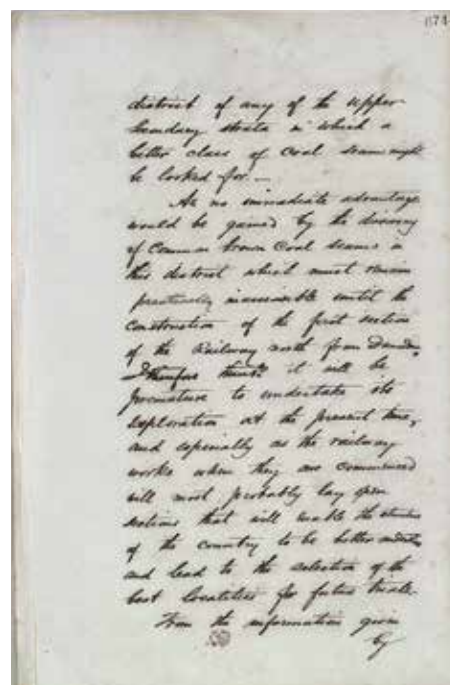 674
district of any of the upper
Secondary strata in which a
better class of Coal seam might
be looked for —
As no immediate advantage
would be gained by the discovery
of Common brown Coal seams in
this district which must remain
practically inaccessible until the
Construction of the first section
of the Railway north from Dunedin
I therefore think it will be
premature to undertake its
exploration at the present time,
and especially as the railway
works when they are commenced
will most probably lay open
sections that will enable the structure
of the country to be better
and lead to the selection of the
best localities for future trials.
From the information given
by